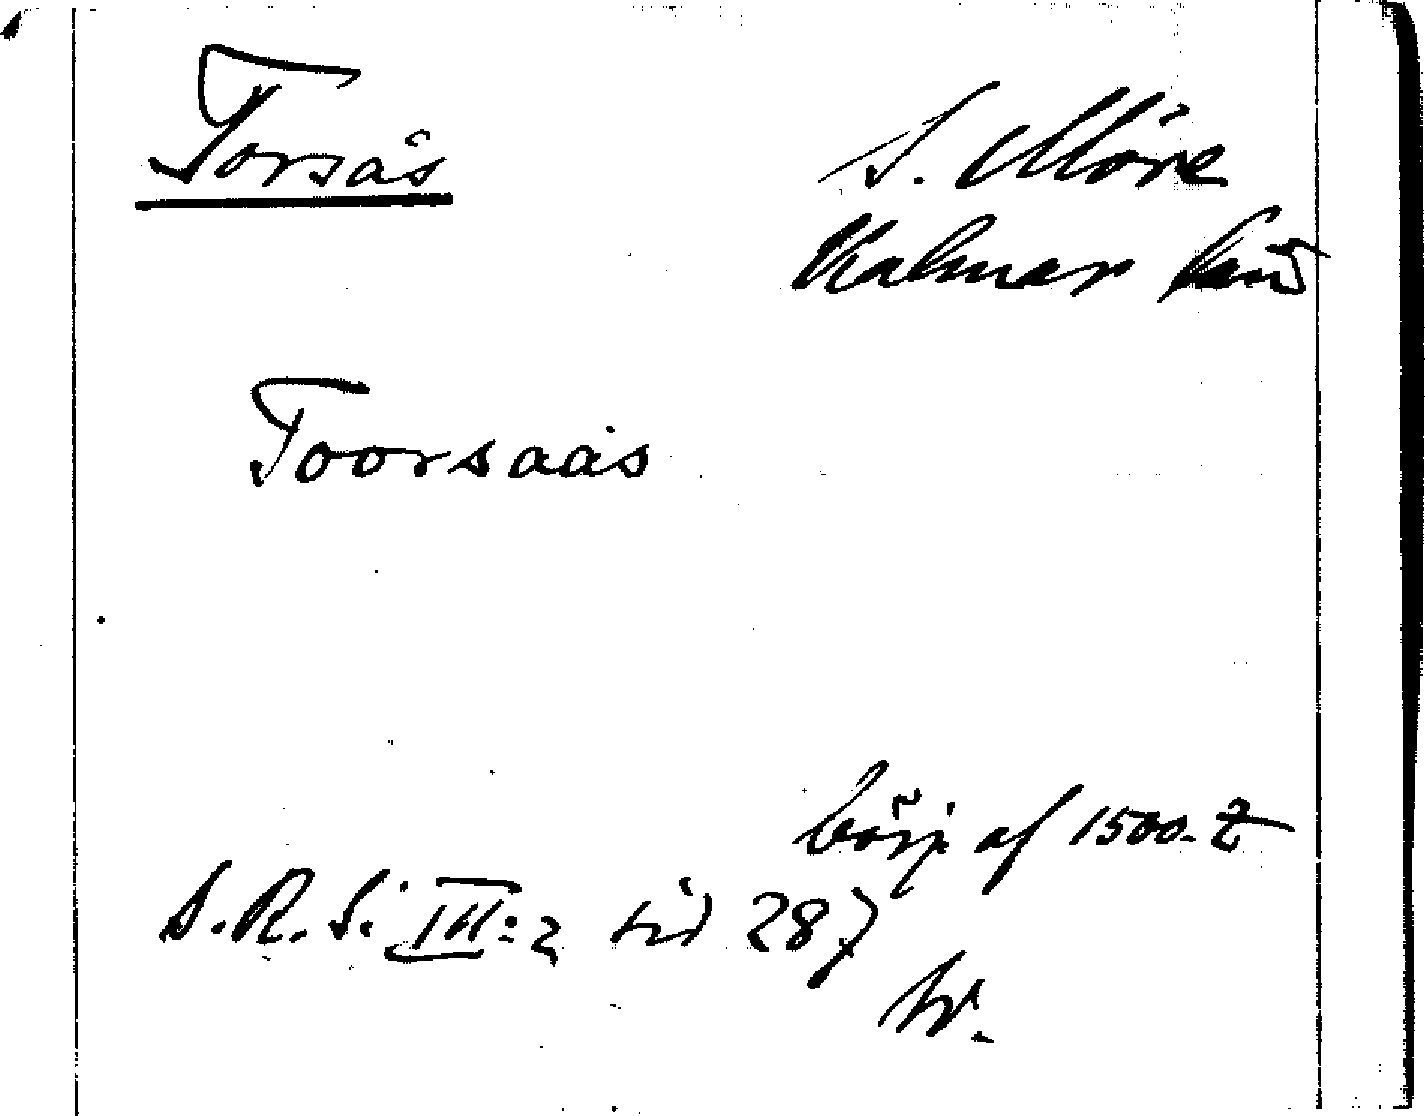 Torsås
S. Möre
Kalmar län
Toorsaas
börj. af 1500-t
S.R.S. III:2 sid 287
W.